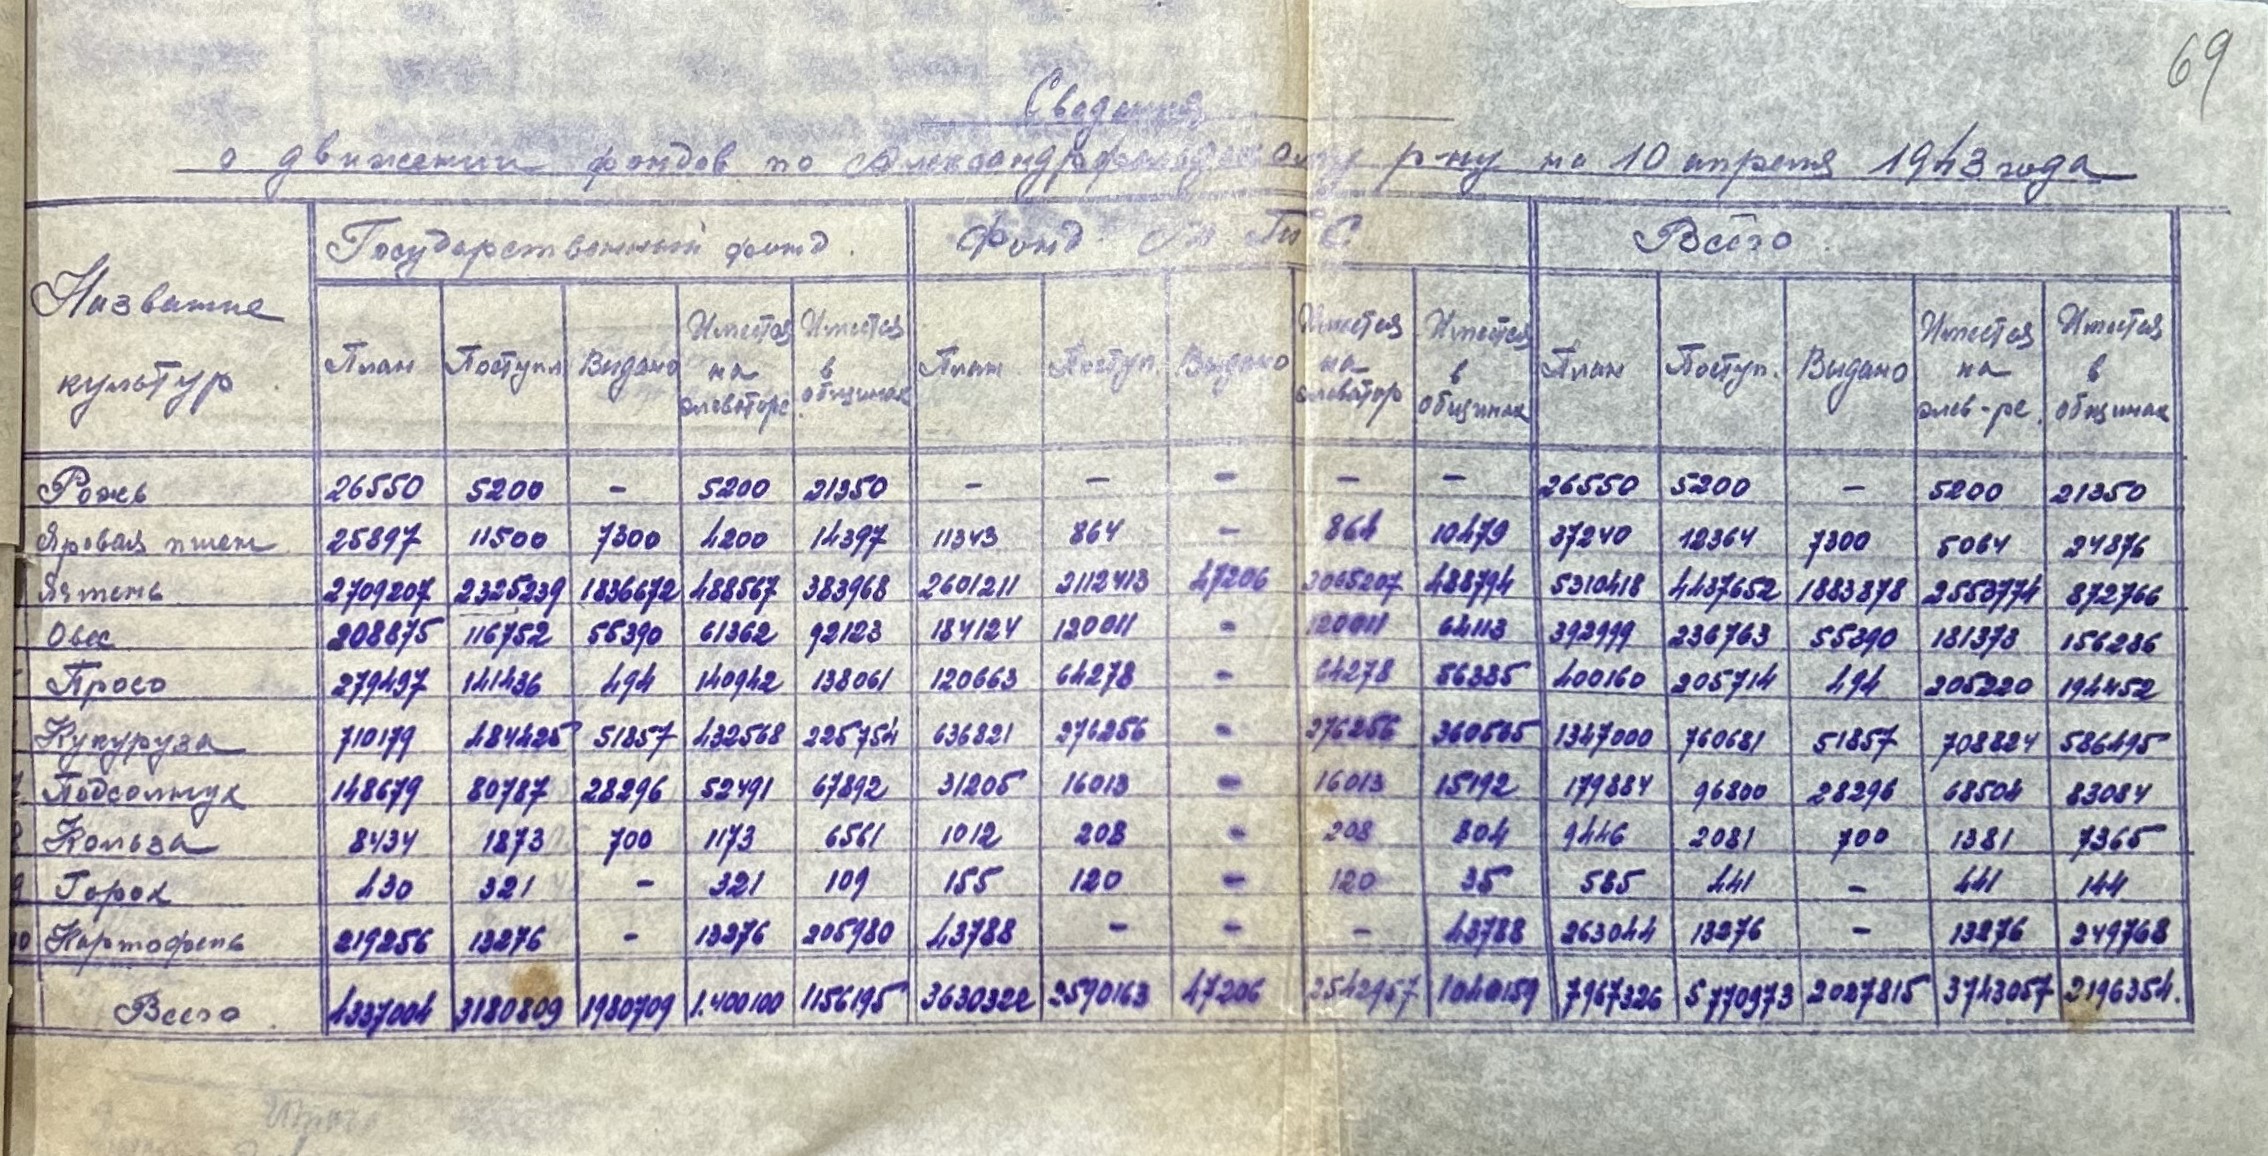 69
Сведения
о движении фондов по Александрфельдскому р-ну на 10 апреля 1943 года
Название культур | Государственный фонд | Фонд | Всего
План | Поступл | Выдано | Имеется на элеваторе | Имеется в общинах | План | Поступ. | Выдано | Имеется на элеватор | Имеется в общинах | План | Поступ. | Выдано | Имеется на элев-ре. | Имеется в общинах
Рожь | 26550 | 5200 | – | 5200 | 21350 | – | – | – | – | – | 26550 | 5200 | – | 5200 | 21350
Яровая пшен | 25897 | 11500 | 7300 | 4200 | 14397 | 11343 | 864 | – | 864 | 10479 | 37240 | 12364 | 7300 | 5064 | 24876
Ячмень | 2709207 | 2325239 | 1836672 | 488567 | 383968 | 2601211 | 2112413 | 47206 | 2065207 | 488794 | 5310418 | 4437652 | 1883878 | 2553774 | 872766
Овес | 208875 | 116752 | 55390 | 61362 | 92123 | 184124 | 120011 | – | 120011 | 64113 | 392999 | 236763 | 55390 | 181373 | 156236
Просо | 279497 | 141436 | 494 | 140942 | 138061 | 120663 | 64278 | – | 64278 | 56385 | 400160 | 205714 | 494 | 205220 | 194452
Кукуруза | 710179 | 484425 | 51857 | 432568 | 225754 | 636821 | 276256 | – | 276256 | 360565 | 1347000 | 760681 | 51857 | 708824 | 586495
7 Подсолнух | 148679 | 80787 | 28296 | 52491 | 67892 | 31205 | 16013 | – | 16013 | 15192 | 179884 | 96800 | 28296 | 68504 | 83084
8 Кольза | 8434 | 1873 | 700 | 1173 | 6561 | 1012 | 208 | – | 208 | 804 | 9446 | 2081 | 700 | 1381 | 7365
9 Горох | 430 | 321 | – | 321 | 109 | 155 | 120 | – | 120 | 35 | 585 | 441 | – | 441 | 144
10 Картофель | 219256 | 13276 | – | 13276 | 205980 | 43788 | – | – | – | 43788 | 263044 | 13276 | – | 13276 | 249768
Всего | 4337004 | 3180809 | 1980709 | 1.400100 | 1156195 | 3630322 | 2590163 | 47206 | 2542957 | 1040159 | 7967326 | 5770973 | 2027815 | 3743057 | 2196354.